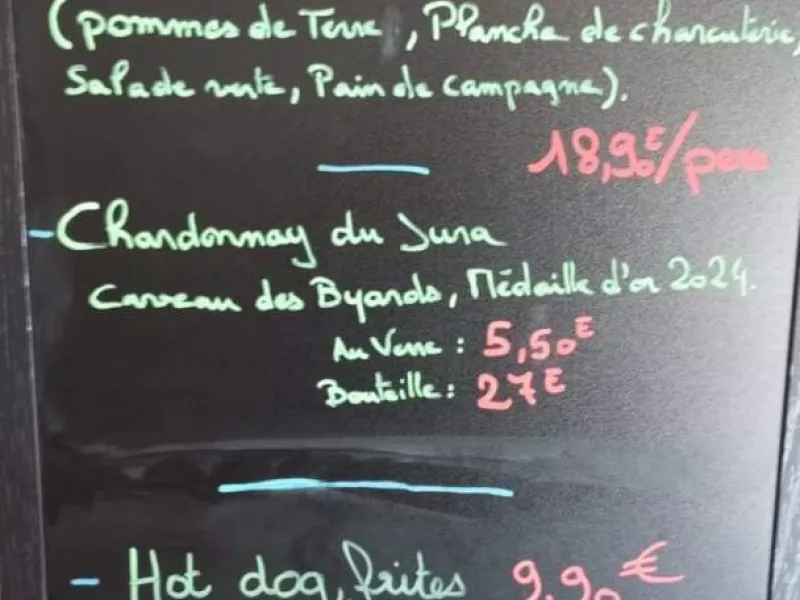 (pommes de Terre, Planche de charcuterie,
Salade verte, Pain de campagne).
18,90€/pers
- Chardonnay du Jura
Caveau des Byards, Médaille d'or 2024.
Au Verre : 5,50€
Bouteille : 27€
- Hot dog, frites 9,90€